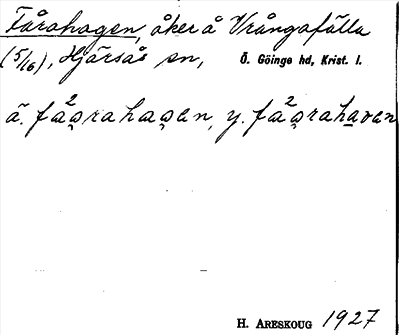 Fårahagen, åker å Vrångafälla
(5/16), Hjärsås sn, Ö. Göinge hd, Krist. l.
ä. fa²ǫrahaǫan, y. fa²ǫrahavan
H. ARESKOUG 1927